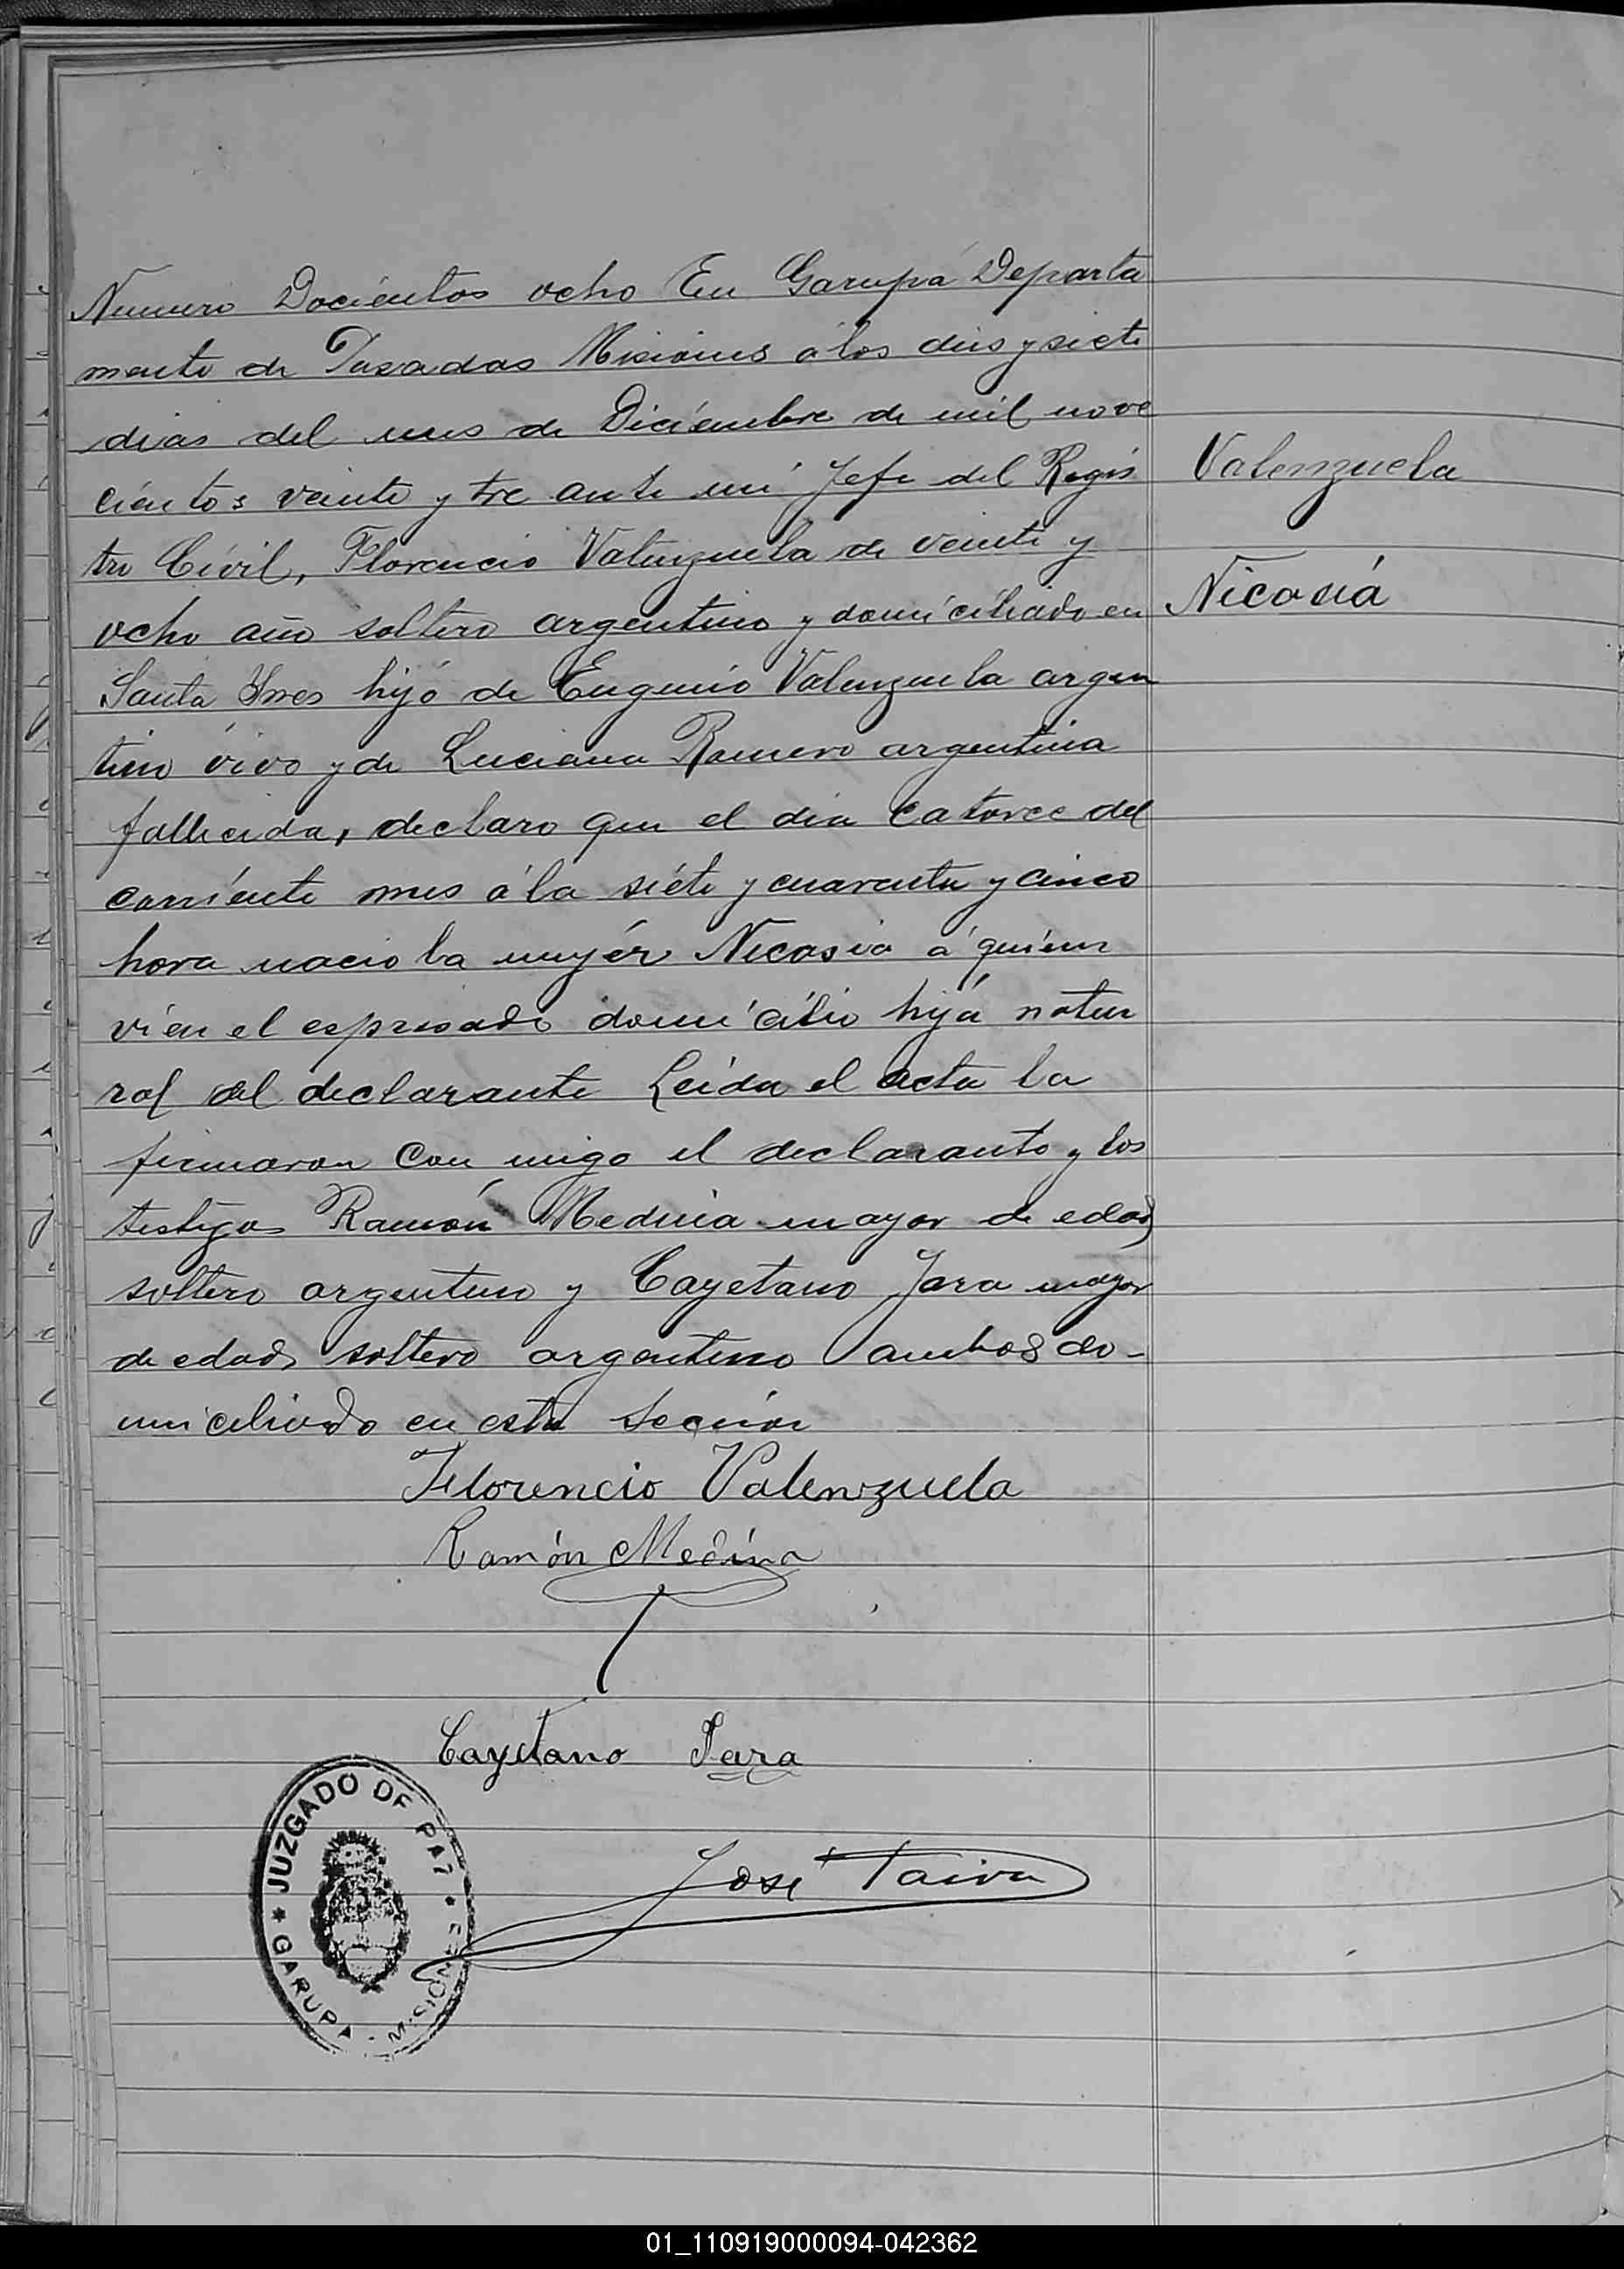 Numero Docientos ocho En Garupá Departa
mento de Posadas Misiones á los dies y siete
dias del mes de Diciembre de mil nove
cientos veinte y tre ante mi Jefe del Regis
tro Civil, Florencio Valenzuela de veinte y
ocho año soltero argentino y domiciliado en
Santa Ines hijo de Eugenio Valenzuela argen
tino vivo y de Luciana Romero argentina
fallecida, declaro que el dia catorce del
corriente mes á la siete y cuarenta y cinco
hora nacio la mujér Nicasia á quien
vi en el espresado domicilio hija natu
ral del declarante Leida el acta la
firmaron con migo el declarante y los
testigos Ramón Medina mayor de edad
soltero argentino y Cayetano Jara mayor
de edad soltero argentino ambos do-
miciliado en esta seccion
Valenzuela
Nicasia
Florencio Valenzuela
Ramón Medina
Cayetano Jara
José Paiva
JUZGADO DE PAZ
GARUPA
MISIONES
01_110919000094-042362